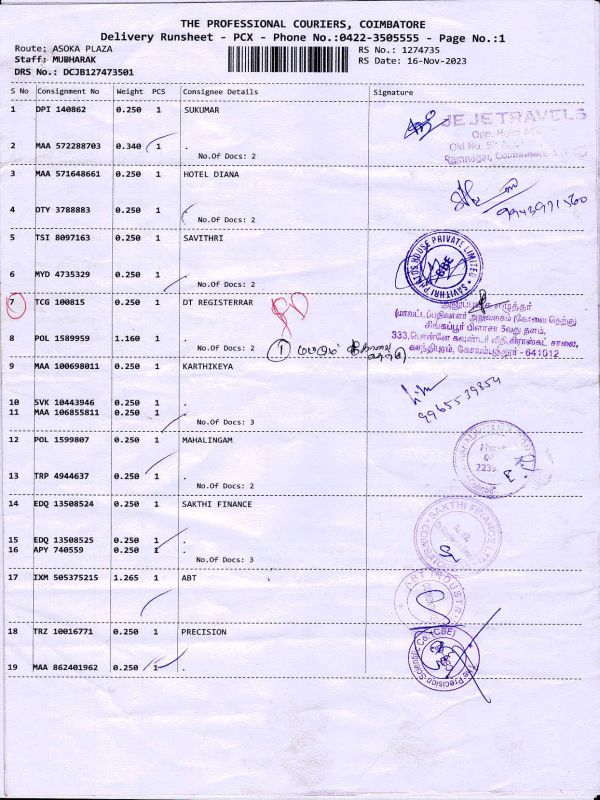 THE PROFESSIONAL COURIERS, COIMBATORE
Delivery Runsheet - PCX - Phone No.:0422-3505555 - Page No.:1
Route: ASOKA PLAZA
RS No.: 1274735
Staff: MUBHARAK
RS Date: 16-Nov-2023
DRS No.: DCJB127473501
S No Consignment No Weight PCS Consignee Details Signature
1 DPI 140862 0.250 1 SUKUMAR
JEJETRAVELS
Old No.
Ramnagar,
2 MAA 572288703 0.340 1 .
No.Of Docs: 2
3 MAA 571648661 0.250 1 HOTEL DIANA
9943971560
4 DTY 3788883 0.250 1 .
No.Of Docs: 2
5 TSI 8097163 0.250 1 SAVITHRI
SAVITHRI PHOTOS HOUSE PRIVATE LIMITED
CBE
6 MYD 4735329 0.250 1 .
No.Of Docs: 2
7 TCG 100815 0.250 1 DT REGISTERRAR
RD
எழுத்தர்
(மாவட்டப்பதிவாளர் அலுவலகம் (கோவை தெற்கு)
சிங்கப்பூர் பிளாசா 5வது தளம்.
333,பொன்னே கவுண்டர் வீதி,கிராஸ்கட் சாலை,
காந்திபுரம், கோயம்புத்தூர் - 641012
8 POL 1589959 1.160 1 .
No.Of Docs: 2
9 MAA 100698011 0.250 1 KARTHIKEYA
9965539354
10 SVK 10443946 0.250 1 .
11 MAA 106855811 0.250 1 .
No.Of Docs: 3
12 POL 1599807 0.250 1 MAHALINGAM
13 TRP 4944637 0.250 1 .
No.Of Docs: 2
14 EDQ 13508524 0.250 1 SAKTHI FINANCE
SAKTHI FINANCE LTD
15 EDQ 13508525 0.250 1 .
16 APY 740559 0.250 1 .
No.Of Docs: 3
17 IXM 505375215 1.265 1 ABT
ABT INDUSTR
18 TRZ 10016771 0.250 1 PRECISION
The Precision Scientific Co. (CBE)
19 MAA 862401962 0.250 1 .